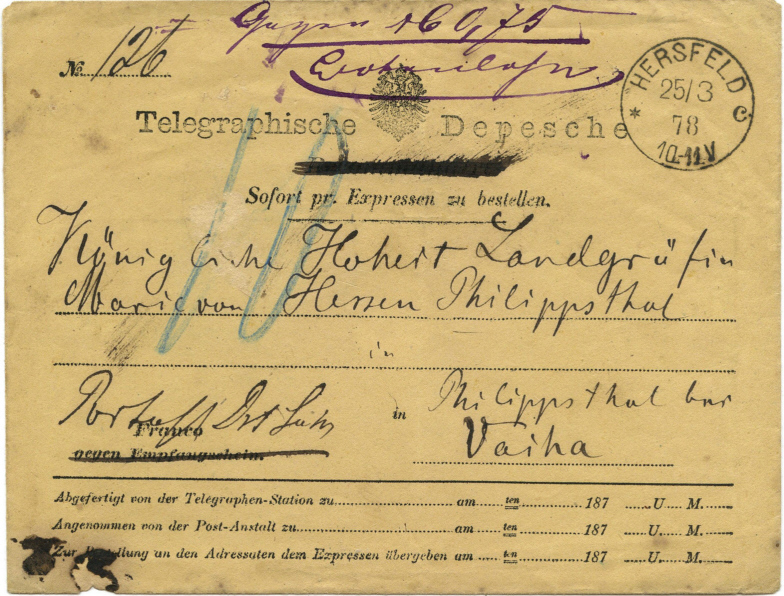 Gegen M 0,75
№ 126
Botenlohn
HERSFELD
25/3
78
10-11 V
* C
Telegraphische Depesche
Sofort pr. Expressen zu bestellen.
Königliche Hoheit Landgräfin
Marie von Hessen Philippsthal
in
Franco
gegen Empfangschein.
in Philippsthal bei
Vacha
Abgefertigt von der Telegraphen-Station zu am ten 187 U. M.
Angenommen von der Post-Anstalt zu am ten 187 U. M.
Zur Bestellung an den Adressaten dem Expressen übergeben am ten 187 U. M.